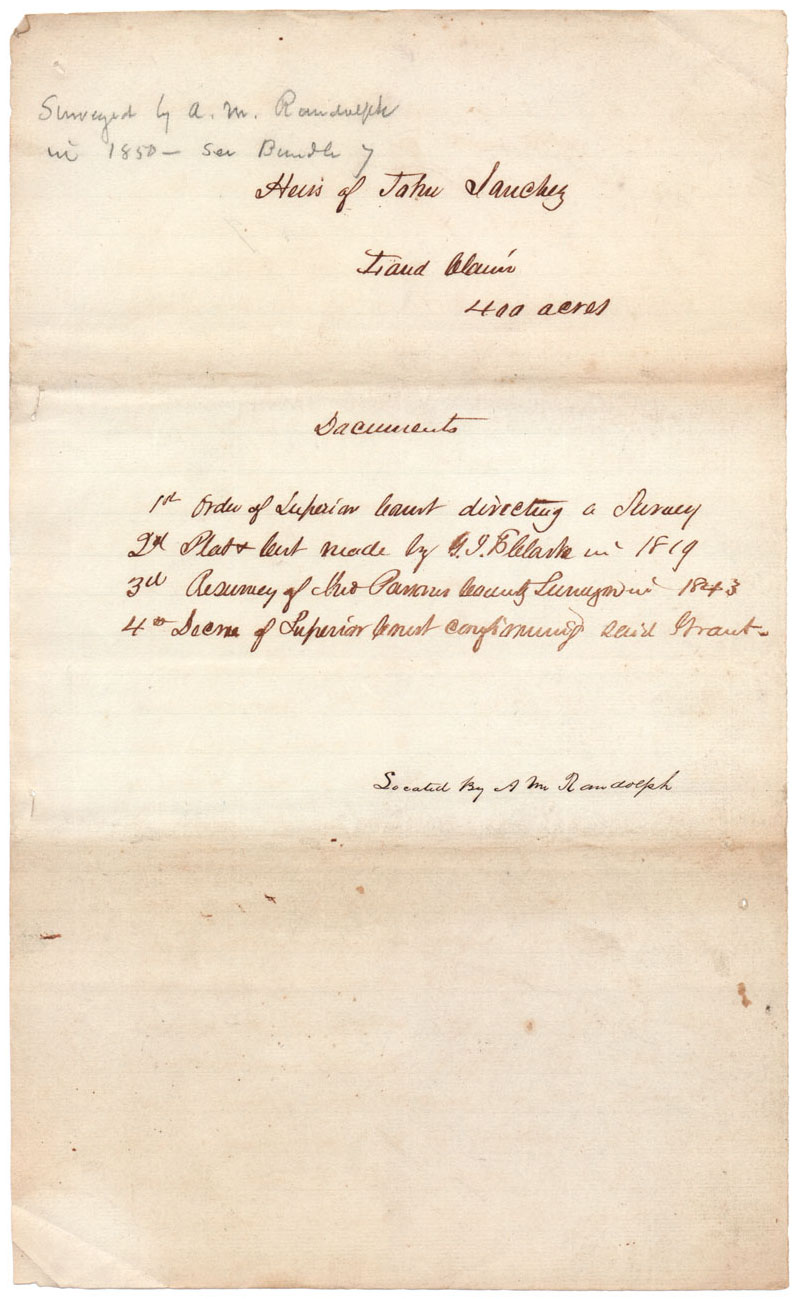 Surveyed by A. M. Randolph
in 1850 – See Bundle 7
Heirs of John Sanchez
Land Claim
400 acres
Documents
1st Order of Superior Court directing a Survey
2d Plat & Cert made by G. I. F. Clark in 1819
3d Resurvey of Parsons County Surveyor in 1843
4th Decree of Superior Court confirming said Grant.
Located By A M Randolph